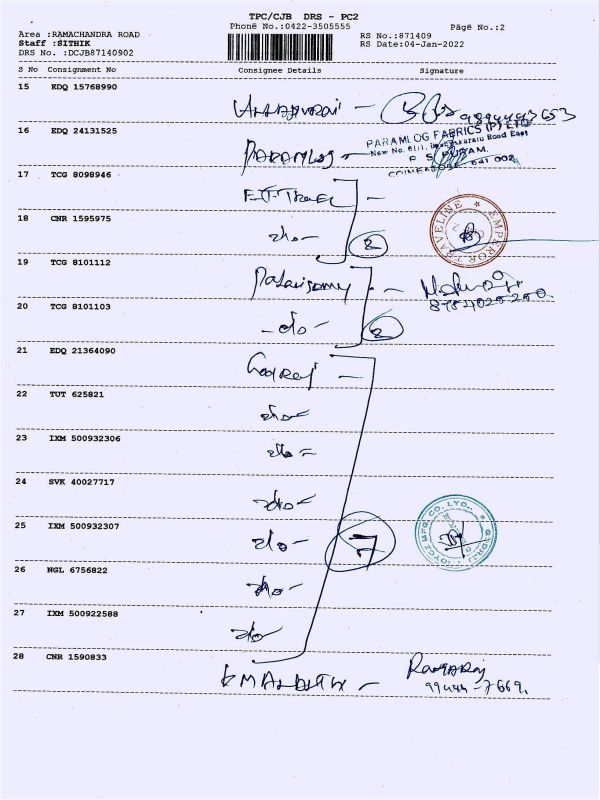 TPC/CJB DRS - PC2
Phone No.:0422-3505555
Page No.:2
Area :RAMACHANDRA ROAD
RS No.:871409
Staff :SITHIK
RS Date:04-Jan-2022
DRS No. :DCJB87140902
S No Consignment No Consignee Details Signature
15 EDQ 15768990
16 EDQ 24131525
PARAMLOG FABRICS (P) LTD
P S PURAM.
COIMBATORE 641 002
17 TCG 8098946
18 CNR 1595975
-do-
2
EMPEROR TRAVELINE
19 TCG 8101112
Palanisamy
20 TCG 8101103
-do-
2
21 EDQ 21364090
Godrej
22 TUT 625821
-do-
23 IXM 500932306
-do-
24 SVK 40027717
-do-
25 IXM 500932307
-do-
7
GODREJ & BOYCE MFG. CO. LTD.
26 NGL 6756822
-do-
27 IXM 500922588
-do-
28 CNR 1590833